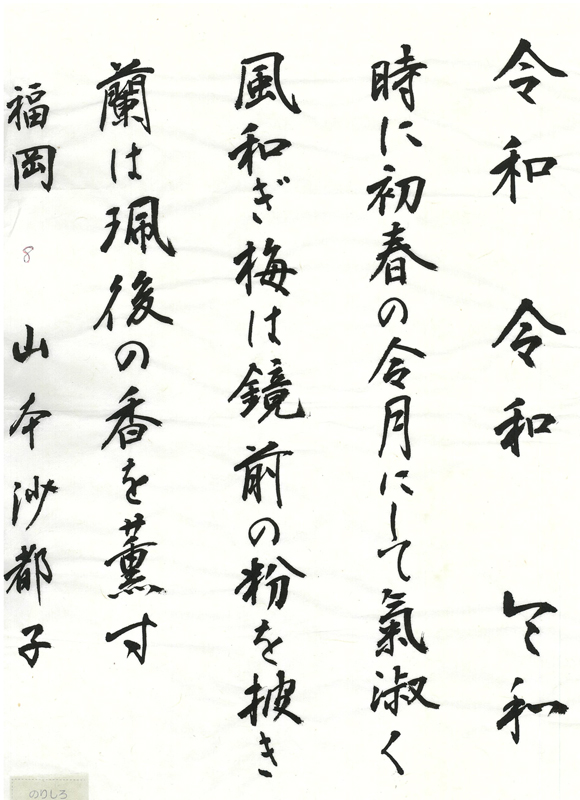 令和 令和 令和
時に初春の令月にして氣淑く
風和ぎ梅は鏡前の粉を披き
蘭は珮後の香を薫す
福岡 8 山本沙都子
のりしろ